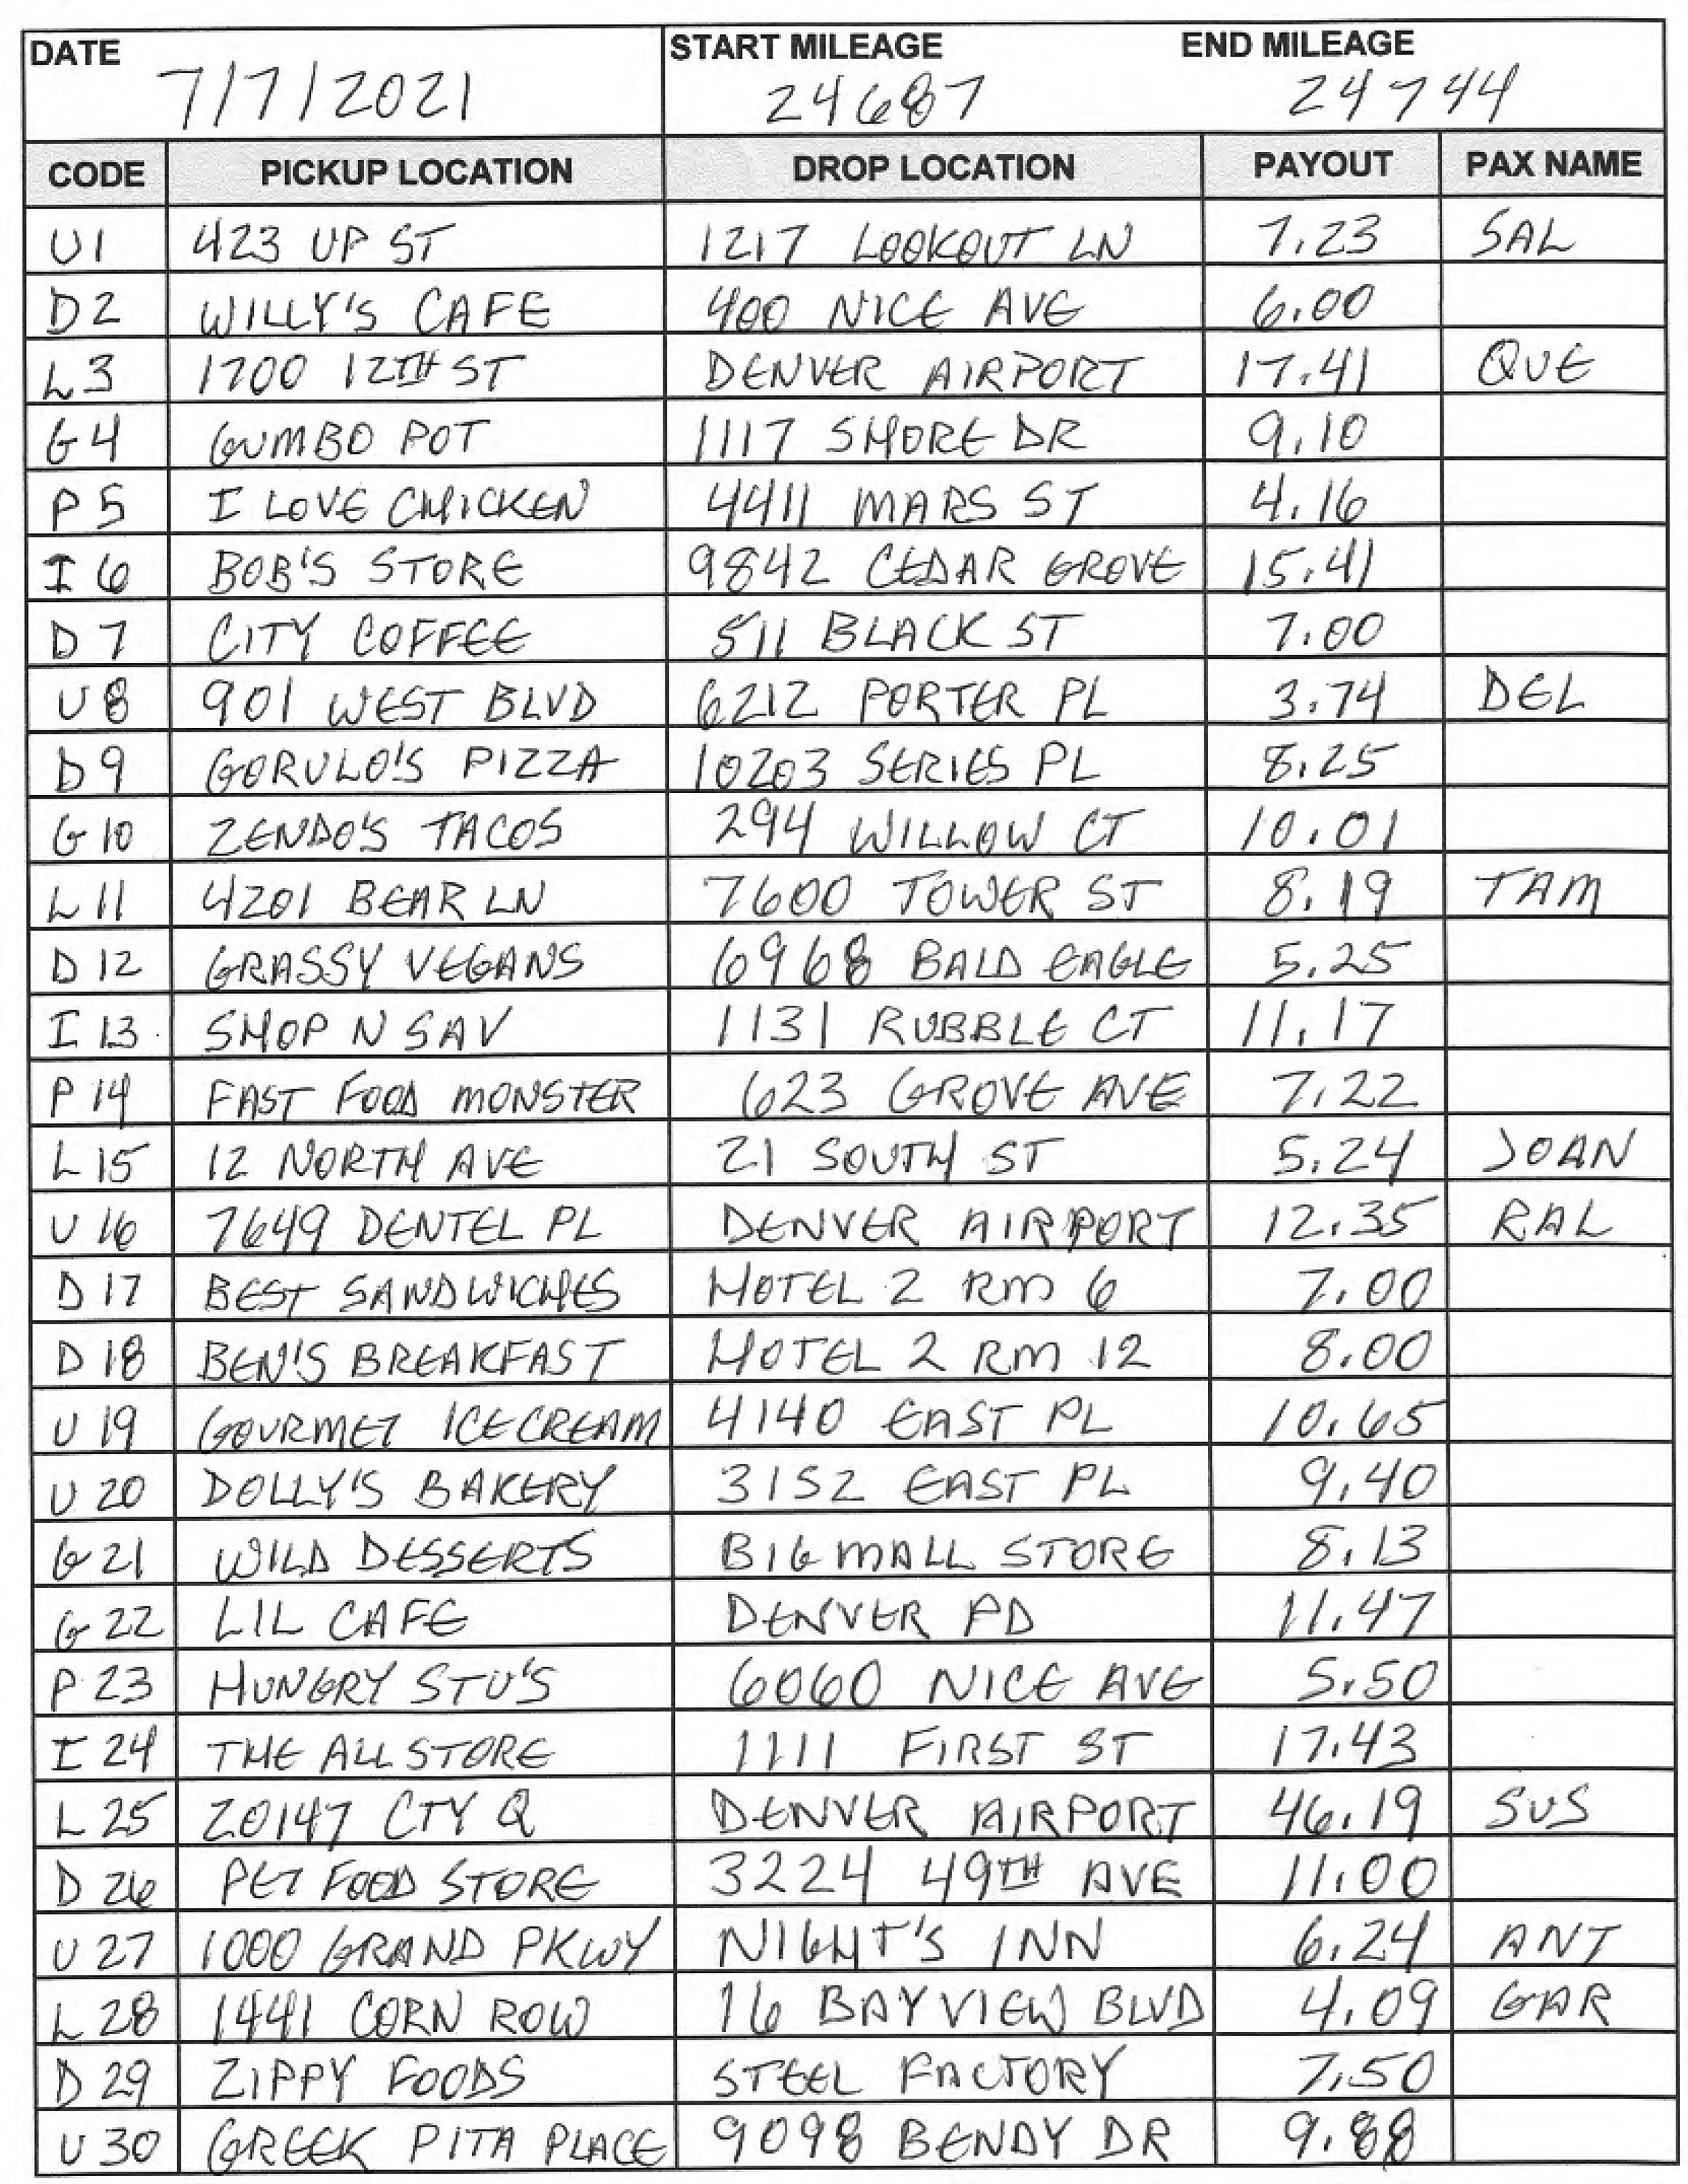 DATE START MILEAGE END MILEAGE
7/7/2021 24687 24744
CODE PICKUP LOCATION DROP LOCATION PAYOUT PAX NAME
U1 423 UP ST 1217 LOOKOUT LN 7.23 SAL
D2 WILLY'S CAFE 400 NICE AVE 6.00
L3 1700 12TH ST DENVER AIRPORT 17.41 QUE
G4 GUMBO POT 1117 SHORE DR 9.10
P5 I LOVE CHICKEN 4411 MARS ST 4.16
I6 BOB'S STORE 9842 CEDAR GROVE 15.41
D7 CITY COFFEE 511 BLACK ST 7.00
U8 901 WEST BLVD 6212 PORTER PL 3.74 DEL
D9 GORULO'S PIZZA 10203 SERIES PL 8.25
G10 ZENDO'S TACOS 294 WILLOW CT 10.01
L11 4201 BEAR LN 7600 TOWER ST 8.19 TAM
D12 GRASSY VEGANS 6968 BALD EAGLE 5.25
I13 SHOP N SAV 1131 RUBBLE CT 11.17
P14 FAST FOOD MONSTER 623 GROVE AVE 7.22
L15 12 NORTH AVE 21 SOUTH ST 5.24 JOAN
U16 7649 DENTEL PL DENVER AIRPORT 12.35 RAL
D17 BEST SANDWICHES HOTEL 2 RM 6 7.00
D18 BEN'S BREAKFAST HOTEL 2 RM 12 8.00
U19 GOURMET ICE CREAM 4140 EAST PL 10.65
U20 DOLLY'S BAKERY 3152 EAST PL 9.40
G21 WILD DESSERTS BIG MALL STORE 8.13
G22 LIL CAFE DENVER PD 11.47
P23 HUNGRY STU'S 6060 NICE AVE 5.50
I24 THE ALL STORE 1111 FIRST ST 17.43
L25 20147 CTY Q DENVER AIRPORT 46.19 SUS
D26 PET FOOD STORE 3224 49TH AVE 11.00
U27 1000 GRAND PKWY NIGHT'S INN 6.24 ANT
L28 1441 CORN ROW 16 BAYVIEW BLVD 4.09 GAR
D29 ZIPPY FOODS STEEL FACTORY 7.50
U30 GREEK PITA PLACE 9098 BENDY DR 9.88